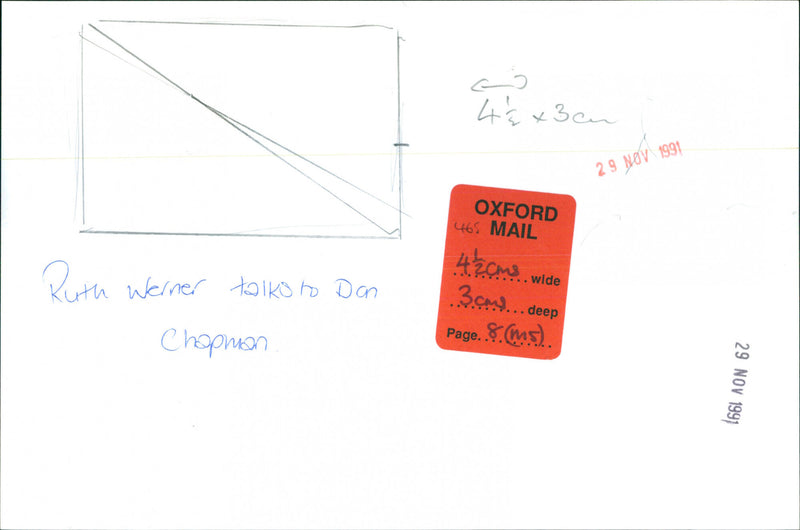 4½ x 3cm
29 NOV 1991
OXFORD
465 MAIL
4½cms wide
3cms deep
Page 8 (M5)
Ruth Werner talks to Dan
Chapman
29 NOV 1991